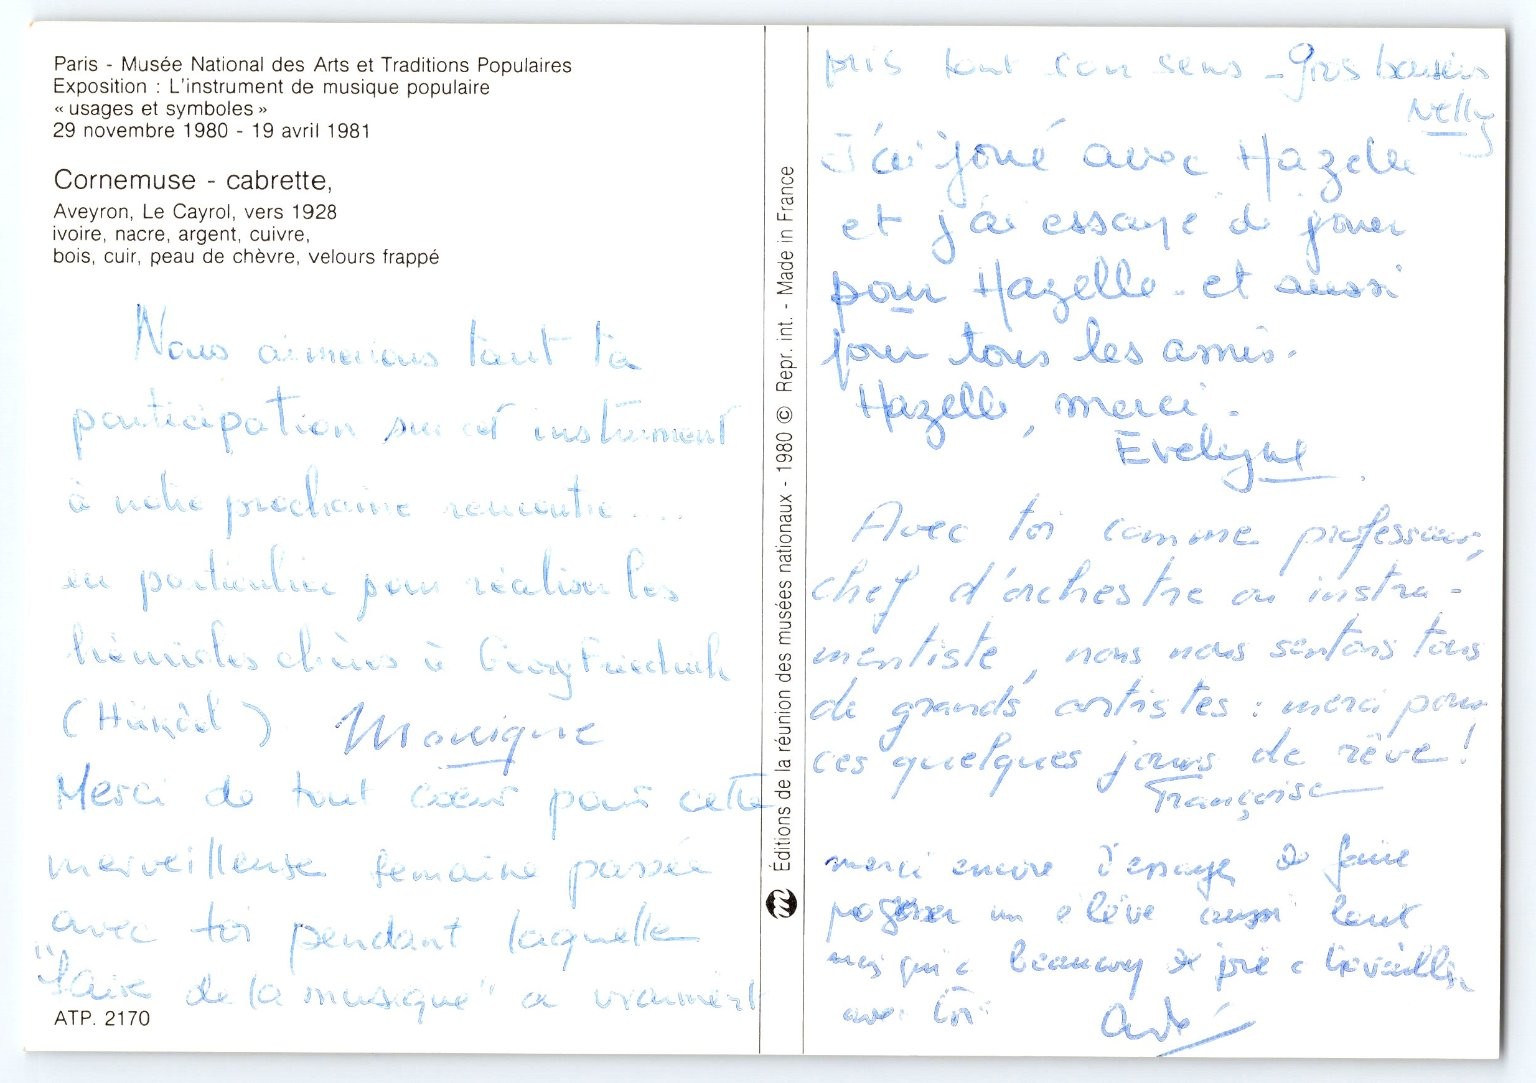 Paris - Musée National des Arts et Traditions Populaires
Exposition : L'instrument de musique populaire
« usages et symboles »
29 novembre 1980 - 19 avril 1981
Cornemuse - cabrette,
Aveyron, Le Cayrol, vers 1928
ivoire, nacre, argent, cuivre,
bois, cuir, peau de chèvre, velours frappé
Nous aimerions tant ta
participation sur cet instrument
à notre prochaine rencontre ....
en particulier pour réaliser les
chers à Georg Friedrich
Monique
Merci de tout coeur pour cette
merveilleuse semaine passée
avec toi pendant laquelle
"faire de la musique" a vraiment
ATP. 2170
Éditions de la réunion des musées nationaux - 1980 © Repr. int. - Made in France
pris tout son sens - Gros baisers
Nelly
J'ai joué avec Hazelle
et j'ai essayé de jouer
pour Hazelle - et aussi
pour tous les amis.
Hazelle, merci.
Evelyne
Avec toi comme professeur,
chef d'orchestre ou instru-
mentiste, nous nous sentons tous
de grands artistes : merci pour
ces quelques jours de rêve !
Françoise
merci encore d'essayer de faire
un élève aussi lent
mais qui a beaucoup de joie a travailler
avec toi